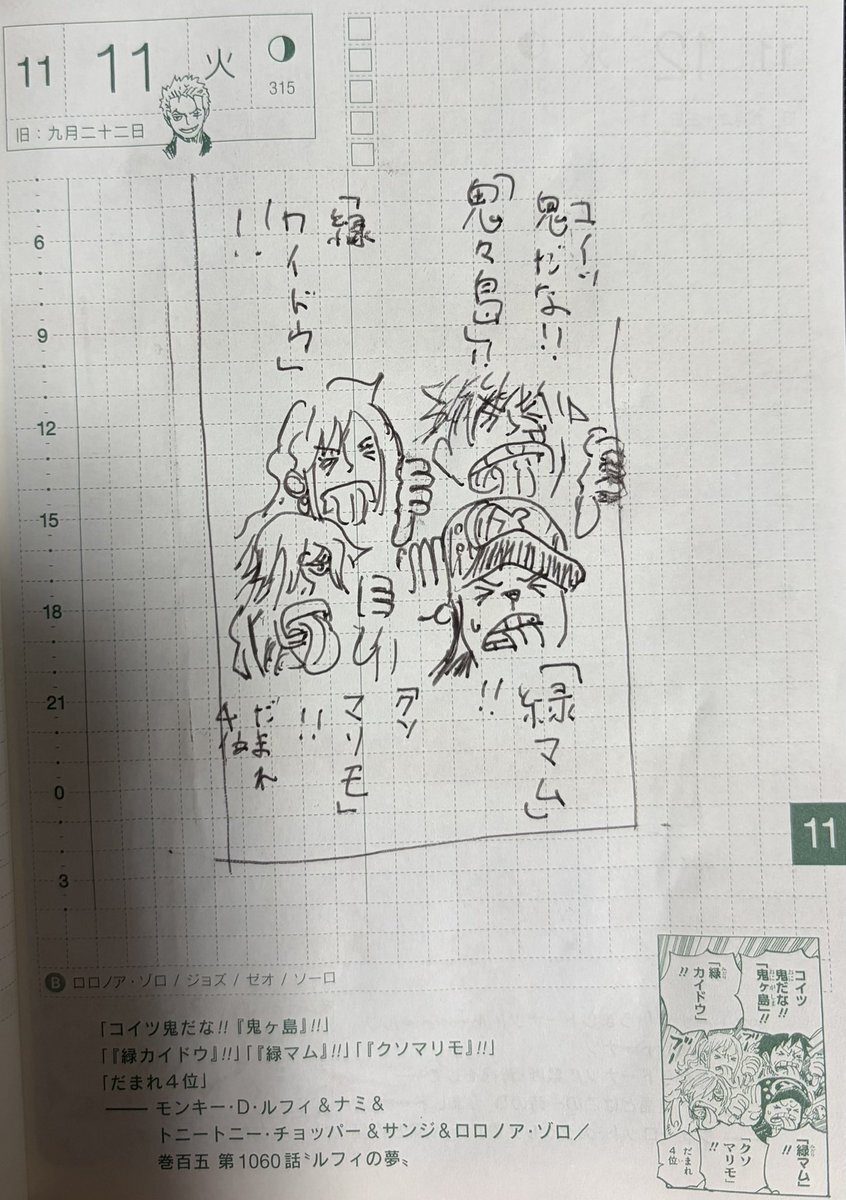 11 11 火
315
旧：九月二十二日
コイツ
鬼だな!!
「鬼々島」!!
「緑
カイドウ」
!!
「緑マム」
!!
「クソ
マリモ」
!!
だまれ
4位
6
9
12
15
18
21
0
3
11
B ロロノア・ゾロ / ジョズ / ゼオ / ソーロ
「コイツ鬼だな!!『鬼ヶ島』!!」
「『緑カイドウ』!!」「『緑マム』!!」「『クソマリモ』!!」
「だまれ4位」
―― モンキー・D・ルフィ＆ナミ＆
トニートニー・チョッパー＆サンジ＆ロロノア・ゾロ／
巻百五 第1060話〝ルフィの夢〟
コイツ
鬼だな!!
「鬼ヶ島」!!
「緑
カイドウ」
!!
「緑マム」
!!
「クソ
マリモ」
!!
だまれ
4位